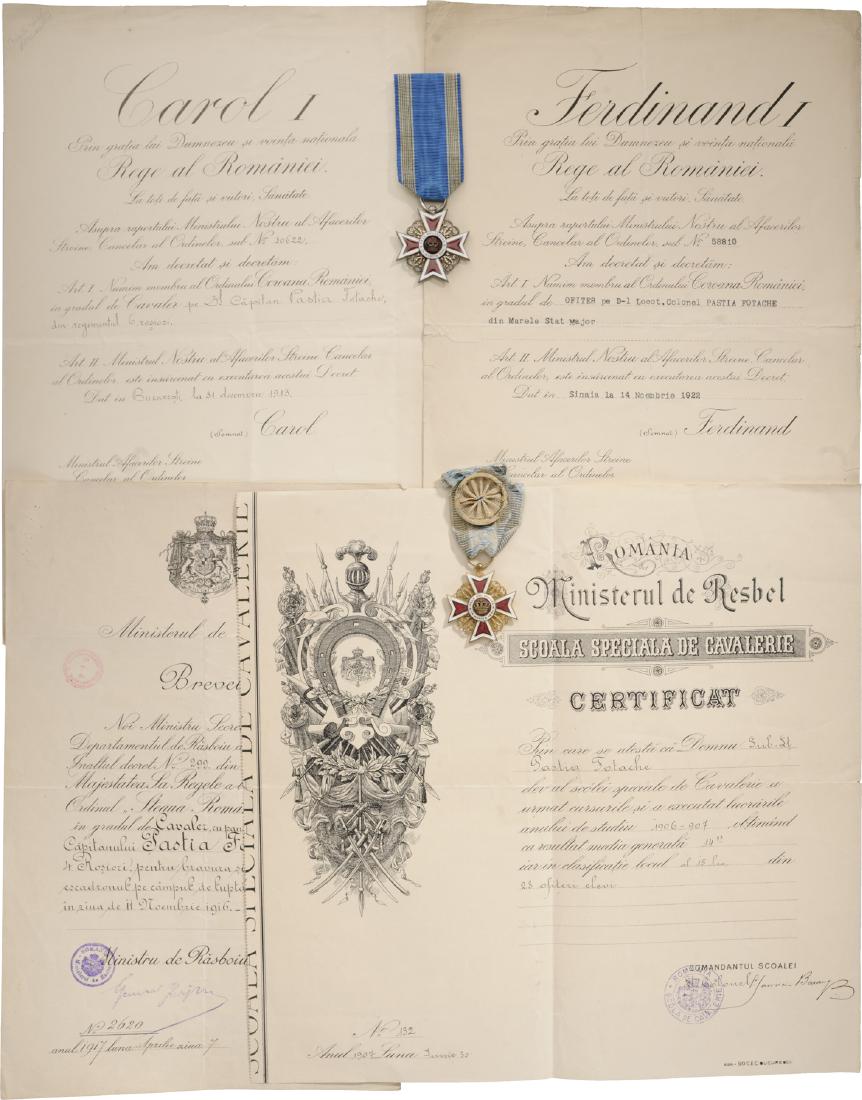 Carol I
Prin grația lui Dumnezeu și voința națională
Rege al României.
La toți de față și viitori, Sănătate.
Asupra raportului Ministrului Nostru al Afacerilor
Streine, Cancelar al Ordinelor, sub No 20622.
Am decretat și decretăm:
Art I Numim membru al Ordinului Coroana României,
în gradul de Cavaler pe Dl Căpitan Pastia Fotache,
din regimentul 6 roșiori.
Art II. Ministrul Nostru al Afacerilor Streine Cancelar
al Ordinelor, este însărcinat cu executarea acestui Decret.
Dat în București la 31 decemvrie 1913.
(Semnat) Carol
Ministrul Afacerilor Streine
Cancelar al Ordinelor
Ferdinand I
Prin grația lui Dumnezeu și voința națională
Rege al României.
La toți de față și viitori, Sănătate.
Asupra raportului Ministrului Nostru al Afacerilor
Streine, Cancelar al Ordinelor, sub No 58810
Am decretat și decretăm:
Art I. Numim membru al Ordinului Coroana României,
în gradul de OFITER pe D-l Locot.Colonel PASTIA FOTACHE
din Marele Stat Major
Art II. Ministrul Nostru al Afacerilor Streine, Cancelar
al Ordinelor, este însărcinat cu executarea acestui Decret.
Dat în Sinaia la 14 Noembrie 1922
(Semnat) Ferdinand
Ministrul Afacerilor Streine
Cancelar al Ordinelor
Ministerul de
Breve
Noi Ministru Secre
Departamentul de Răsboiu
Înaltul decret No 299 din
Majestatea Sa Regele a b
Ordinul „Steaua Româ
în gradul de Cavaler, cu pan
Căpitanului Pastia F
4 Roșiori, pentru bravura
escadronul pe câmpul de lupta
în ziua de 11 Noembrie 1916.
Ministru de Răsboiu
General
No 2620
anul 1917 luna Aprilie ziua 7
SCOALA SPECIALA DE CAVALERIE
ROMÂNIA
Ministerul de Resbel
SCOALA SPECIALA DE CAVALERIE
CERTIFICAT
Prin care se atestă că Domnu Sub. Lt
Pastia Fotache
elev al scolei speciale de Cavalerie a
urmat cursurile și a executat lucrările
anului de studiu 1906-907 obținînd
ca resultat media generală 14
iar în clasificație locul al 15 lea din
23 ofițeri elevi
COMANDANTUL SCOALEI
Colonel
No 132
Anul 1907 Luna Iunie 30